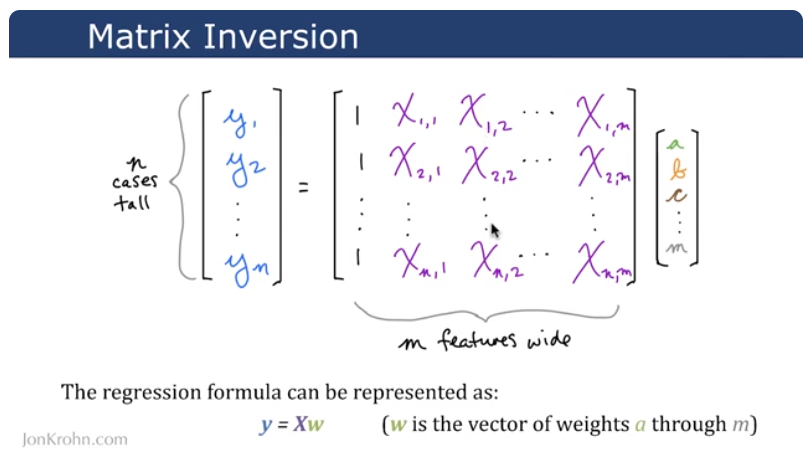 Matrix Inversion
n cases tall
[ y₁ ] = [ 1 X₁,₁ X₁,₂ ⋯ X₁,ₘ ] [ a ]
[ y₂ ] [ 1 X₂,₁ X₂,₂ ⋯ X₂,ₘ ] [ b ]
[ ⋮ ] [ ⋮ ⋮ ⋮ ⋮ ] [ c ]
[ yₙ ] [ 1 Xₙ,₁ Xₙ,₂ ⋯ Xₙ,ₘ ] [ ⋮ ]
[ m ]
m features wide
The regression formula can be represented as:
y = Xw (w is the vector of weights a through m)
JonKrohn.com